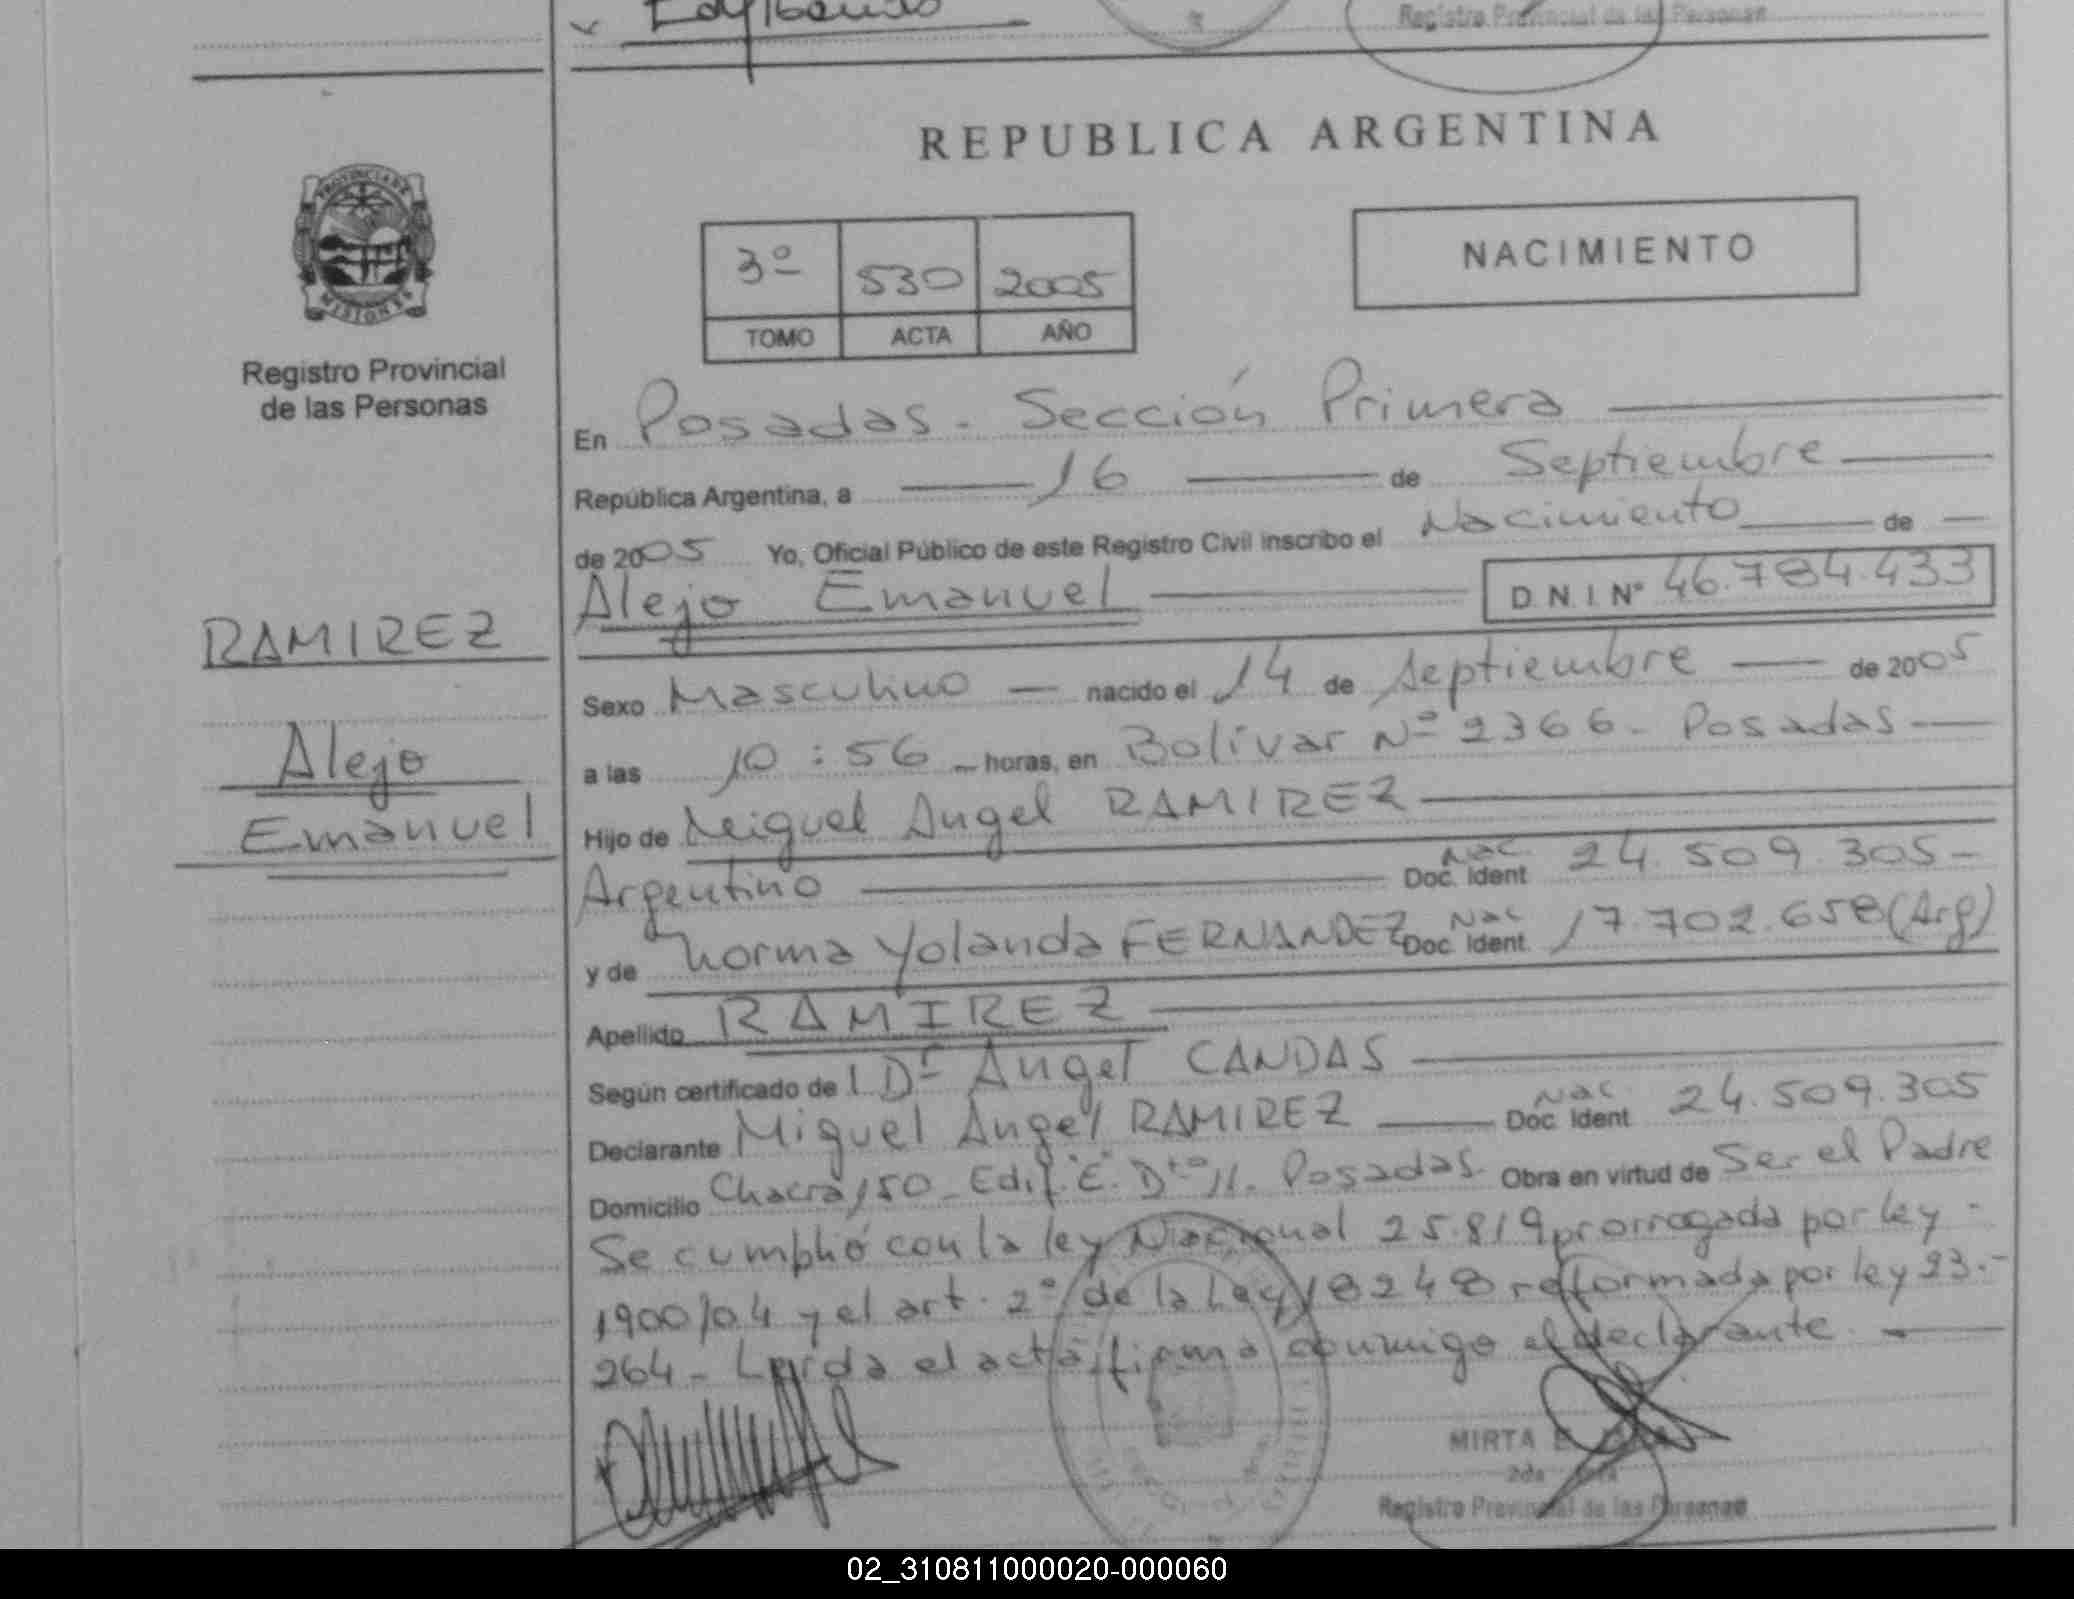 Registro Provincial de las Personas
REPUBLICA ARGENTINA
PROVINCIA DE
MISIONES
Registro Provincial
de las Personas
3º 530 2005
TOMO ACTA AÑO
NACIMIENTO
En Posadas - Sección Primera
República Argentina, a 16 de Septiembre
de 2005 Yo, Oficial Público de este Registro Civil inscribo el Nacimiento de
Alejo Emanuel D.N.I. Nº 46.784.433
RAMIREZ
Alejo
Emanuel
Sexo Masculino nacido el 14 de Septiembre de 2005
a las 10:56 horas, en Bolívar Nº 2366 - Posadas
Hijo de Miguel Angel RAMIREZ
Argentino Nac. Doc. Ident. 24.509.305-
y de Norma Yolanda FERNANDEZ Nac Doc. Ident. 17.702.658 (Arg)
Apellido RAMIREZ
Según certificado de l Dr Angel CANDAS
Declarante Miguel Angel RAMIREZ Nac. Doc. Ident. 24.509.305
Domicilio Chacra 150 - Edif. "E". Dto 11. Posadas. Obra en virtud de Ser el Padre
Se cumplió con la ley Nacional 25.819 prorrogada por ley -
1900/04 y el art. 2º de la Ley 18248 reformada por ley 23.-
264 - Leída el acta, firma conmigo el declarante.
MIRTA
2da
Registro Provincial de las Personas
02_310811000020-000060